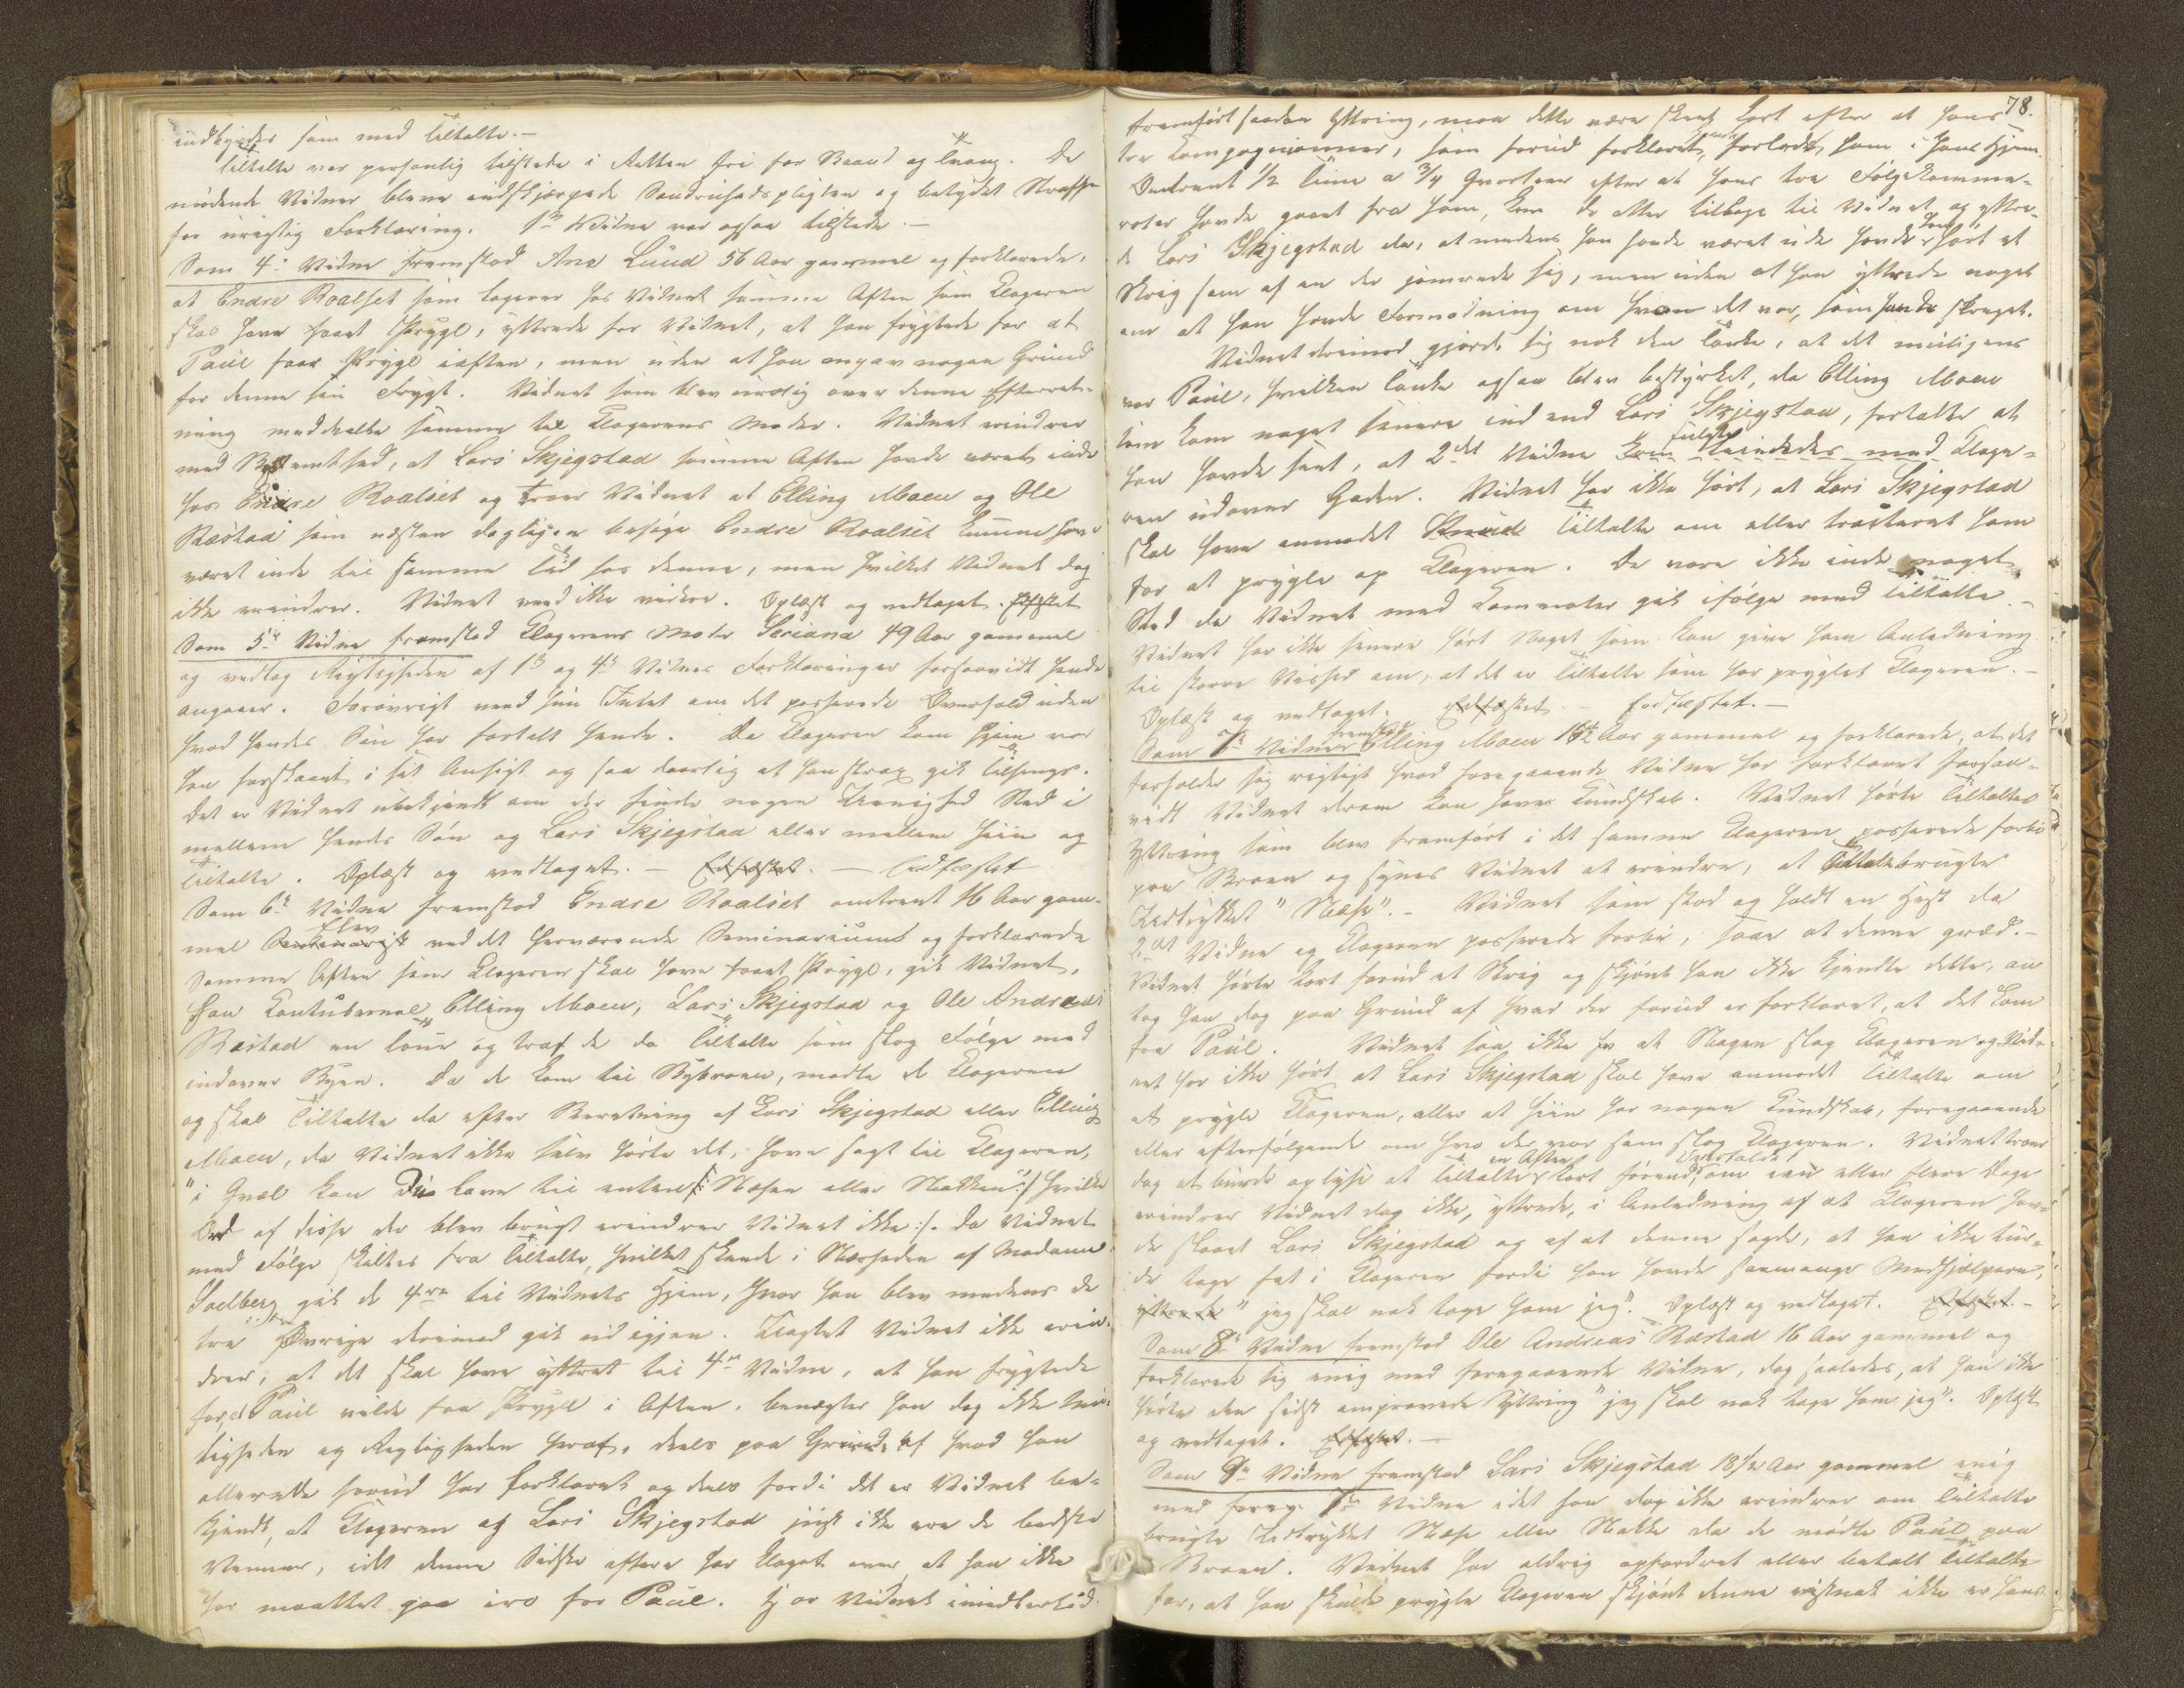 indbyrdes som med Tiltalte.—
Tiltalte var personlig tilstede i Retten fri for Baand og Tvang. De
mødende Vidner bleve indskjærpede Sandhedspligten og betydet Straffen
for urigtig Forklaring. 1ste Vidne var ogsaa tilstede.—
Som 4de Vidne fremstod Ane Lund 56 Aar gammel og forklarede,
at Endre Roalset som logerer hos Vidnet samme Aften som Klageren
skal have faaet Prygl, yttrede for Vidnet, at han frygtede for at
Paul faar Prygl iaften, men uden at han angav nogen Grund
for denne sin Frygt. Vidnet som blev urolig over denne Efterret-
ning meddeelte samme til Klagerens Moder. Vidnet erindrer
med Bestemthed, at Lars Skjegstad samme Aften havde været inde
hos Endre Roalset og troer Vidnet at Elling Moen og Ole
Røstad som næsten dagligen besøge Endre Roalset kunne have
været inde til samme Tid hos denne, men hvilket Vidnet dog
ikke erindrer. Vidnet veed ikke videre. Oplæst og vedtaget. Edfæstet
Som 5te Vidne fremstod Klagerens Moder Seriana 49 Aar gammel
og vedtog Rigtigheden af 1ste og 4de Vidnes Forklaringer forsaavidt hende
angaaer. Forøvrigt veed hun Intet om det passerede Overfald uden
hvad hendes Søn har fortalt hende. Da Klageren kom hjem var
han forslaaet i sit Ansigt og saa daarlig at han strax gik tilsengs.
Det er Vidnet ubekjendt om der finde nogen Uenighed Sted i
mellem hendes Søn og Lars Skjegstad eller mellem hiin og
Tiltalte. Oplæst og vedtaget.— Edfæstet.— Eedfæstet
Som 6te Vidne fremstod Endre Roalset omtrent 16 Aar gam-
mel Seminarist Elev ved det herværende Seminarium og forklarede
Samme Aften som Klageren skal have faaet Prygl, gik Vidnet,
hans Contubernal Elling Moen, Lars Skjegstad og Ole Andreas
Røstad en Tour og traf de da Tiltalte som slog Følge med
indover Byen. Da de kom til Bybroen, mødte de Klageren
og skal Tiltalte da efter Beretning af Lars Skjegstad eller Elling
Moen, da Vidnet ikke selv hørte det, have sagt til Klageren,
"i Qvel kan Du lave til enten /: Næsen eller Nakken" /: hvilke
Ord af disse der blev brugt erindrer Vidnet ikke :/. Da Vidnet
med Følge skiltes fra Tiltalte, hvilket skeede i Nærheden af Madame
Soelberg gik de 4re til Vidnets Hjem, hvor han blev medens de
tre Øvrige derimod gik ud igjen. Uagtet Vidnet ikke erin-
drer, at det skal have yttret til 4de Vidne, at han frygtede
for, at Paul vilde faa Prygl i Aften, benægter han dog ikke Mu-
ligheden og Rigtigheden heraf, deels paa Grund af hvad han
allerede forud har forklaret og deels fordi det er Vidnet be-
kjendt, at Klageren og Lars Skjegstad just ikke ere de bedste
Venner, idet denne Sidste oftere har klaget over, at han ikke
har maattet gaa i ro for Paul. Har Vidnet imidlertid
78.
fremført saadan Yttring, maa dette være skeet kort efter at hans
tre Kompagnoner, som forud forklaret, havde forladt ham i hans Hjem.
Omtrent 1/2 Time a 3/4 Qvarteer efter at hans tre Følgekamme-
rater havde gaaet fra ham, kom de atter tilbage til Vidnet og yttre-
de Lars Skjegstad da, at medens han havde været ude havde han hørt et
Skrig som af en der jamrede sig, men uden at han yttrede noget
om at han havde Formodning om hvem det var, som havde skreget.
Vidnet derimod gjorde sig nok den Tanke, at det muligens
var Paul, hvilken Tanke ogsaa blev bestyrket, da Elling Moen
som kom noget senere ind end Lars Skjegstad, fortalte at
han havde seet, at 2det Vidne fulgte Klage-
ren udover Gaden. Vidnet har ikke hørt, at Lars Skjegstad
skal have anmodet Knud Tiltalte om eller tracteret ham
for at prygle op Klageren. De vare ikke inde noget
Sted da Vidnet med Kammerater gik ifølge med Tiltalte.—
Vidnet har ikke senere hørt Noget som kan give ham Anledning
til større Vished om, at det er Tiltalte som har pryglet Klageren.—
Oplæst og vedtaget. Edfæstet.— Eedfæstet.—
Som 7de Vidne fremstod Elling Moen 16 1/2 Aar gammel og forklarede, at det
forholder sig rigtigt hvad foregaaende Vidne har forklaret forsaa-
vidt Vidnet derom kan have Kundskab. Vidnet hørte Tiltaltes
Yttring som blev fremført i det samme Klageren passerede forbi
paa Broen og synes Vidnet at erindre, at Tiltalte brugte
Udtrykket "Næse".— Vidnet som stod og holdt en Hest da
2det Vidne og Klageren passerede forbi, saae at denne græd.—
Vidnet hørte kort forud et Skrig og skjønt han ikke kjendte dette, an
tog han dog paa Grund af hvad der forud er forklaret, at det kom
fra Paul. Vidnet saa ikke at Nogen slog Klageren og Vid-
net har ikke hørt at Lars Skjegstad skal have anmodet Tiltalte om
at prygle Klageren, eller at hiin har nogen Kundskab, foregaaende
eller efterfølgende om hvo der var som slog Klageren. Vidnet troer
dog at burde oplyse at Tiltalte en Aften kort førend Overfaldet, om een eller flere Dage
erindrer Vidnet dog ikke, yttrede, i Anledning af at Klageren hav-
de slaaet Lars Skjegstad og af at denne sagde, at han ikke tur-
de tage fat i Klageren fordi han havde saamange Medhjælpere,
yttrede "jeg skal nok tage ham jeg". Oplæst og vedtaget. Edfæstet.—
Som 8de Vidne fremstod Ole Andreas Røstad 16 Aar gammel og
forklarede sig enig med foregaaende Vidne, dog saaledes, at han ikke
hørte den sidst omprovede Yttring "jeg skal nok tage ham jeg". Oplæst
og vedtaget. Edfæstet.—
Som 9de Vidne fremstod Lars Skjegstad 18 1/2 Aar gammel enig
med foreg. 7de Vidne idet han dog ikke erindrer om Tiltalte
brugte Udtrykket Næse eller Nakke da de mødte Paul paa
Broen. Vidnet har aldrig opfordret eller betalt Tiltalte
for, at han skulde prygle Klageren skjønt denne vistnok ikke er hans